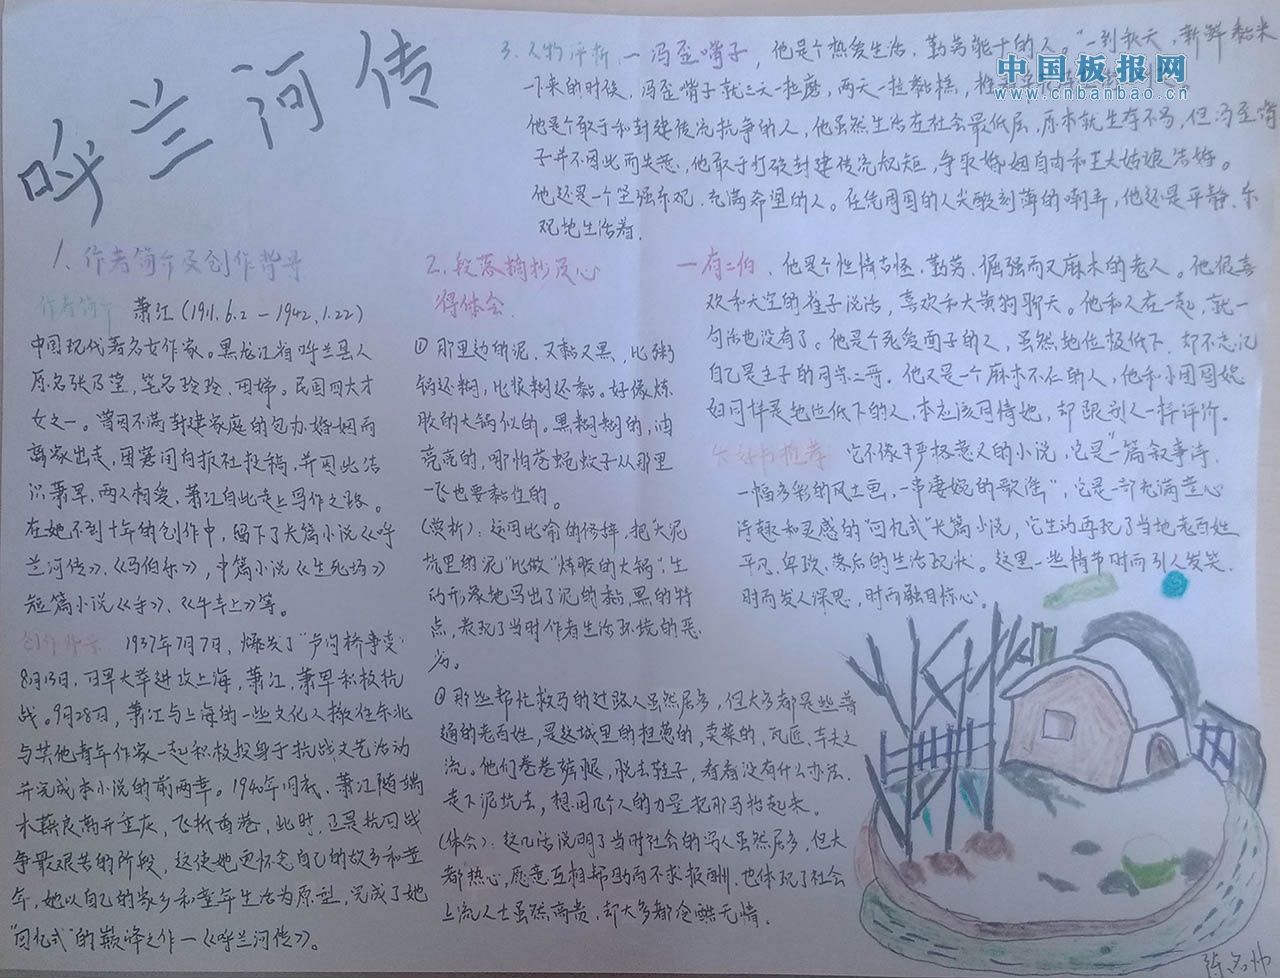 呼兰河传
中国板报网
www.cnbanbao.cn
1、作者简介及创作背景
作者简介 萧红(1911.6.2—1942.1.22)
中国现代著名女作家。黑龙江省呼兰县人
原名张乃莹,笔名玲玲、田娣。民国四大才
女之一。曾因不满封建家庭的包办婚姻而
离家出走,困窘间向报社投稿,并因此结
识萧军,两人相爱,萧红自此走上写作之路。
在她不到十年的创作中,留下了长篇小说《呼
兰河传》、《马伯乐》,中篇小说《生死场》
短篇小说《手》、《牛车上》等。
创作背景 1937年7月7日,爆发了“卢沟桥事变”
8月13日,日军大举进攻上海,萧红,萧军积极抗
战。9月28日,萧红与上海的一些文化人撤往东北
与其他青年作家一起积极投身于抗战文艺活动
并完成本小说的前两章。1940年月底,萧红随端
木蕻良离开重庆,飞抵香港,此时,正是抗日战
争最艰苦的阶段,这使她更怀念自己的故乡和童
年,她以自己的家乡和童年生活为原型,完成了她
“回忆式”的巅峰之作—《呼兰河传》。
2、段落摘抄及心
得体会
①那里边的泥,又黏又黑,比粥
锅还糊,比浆糊还黏。好像炼
胶的大锅似的。黑糊糊的,油
亮亮的,哪怕苍蝇蚊子从那里
一飞也要黏住的。
(赏析):这用比喻的修辞,把大泥
坑里的泥“比做“炼胶的大锅”,生
动形象地写出了泥的黏,黑的特
点,表现了当时作者生活环境的恶
劣。
②那些帮忙救马的过路人虽然居多,但大多都是些普
通的老百姓,是这城里的担葱的,卖菜的,瓦匠,车夫之
流。他们卷卷裤腿,脱去鞋子,看看没有什么办法,
走下泥坑去,想用几个人的力量把那马抬起来。
(体会):这几话说明了当时社会的穷人虽然居多,但大
都热心,愿意互相帮助而不求报酬,也体现了社会
上流人士虽然高贵,却大多都冷酷无情。
3、人物评析—冯歪嘴子,他是个热爱生活,勤劳能干的人。“一到秋天,新鲜黏米
下来的时候,冯歪嘴子就三天一拉磨,两天一拉黏糕,
他是个敢于和封建传统抗争的人,他虽然生活在社会最低层,原本就生存不易,但冯歪嘴
子并不因此而失志,他敢于打破封建传统规矩,争取婚姻自由和王大姑娘结婚。
他还是一个坚强乐观,充满希望的人。任凭周围的人尖酸刻薄的嘲弄,他还是平静、乐
观地生活着。
—有二伯,他是个性情古怪,勤劳,倔强而又麻木的老人。他很喜
欢和天空的雀子说话,喜欢和大黄狗聊天。他和人在一起,就一
句话也没有了。他是个死爱面子的人,虽然地位极低下,却不忘记
自己是主子的同宗二哥。他又是一个麻木不仁的人,他和小团圆媳
妇同样是地位低下的人,本应该同情她,却跟别人一样评价。
4、好书推荐 它不像严格意义的小说,它是“一篇叙事诗,
一幅多彩的风土画,一串凄婉的歌谣”,它是一部充满童心
诗趣和灵感的“回忆式”长篇小说,它生动再现了当地老百姓
平凡、卑琐、落后的生活现状。这里一些情节时而引人发笑,
时而发人深思,时而触目惊心。